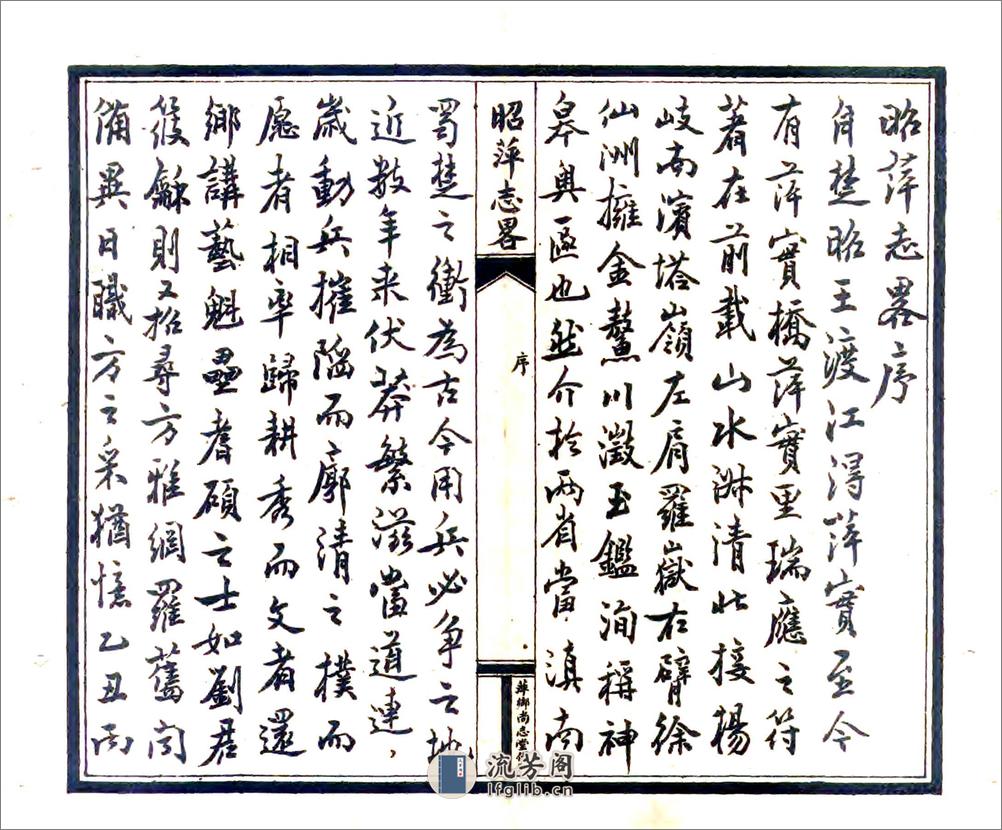 昭萍志畧序
自楚昭王渡江得萍實至今
有萍實橋萍實里瑞應之符
著在前載山水淋清北接楊
岐南濱塔嶺左肩羅嶽右臂徐
仙洲擁金鰲川澂玉鑑洵稱神
皋奥區也然介於兩省當滇南
昭萍志畧
序
萍鄉尚志堂
蜀楚之衝為古今用兵必争之地
近数年来伏莽繁滋當道連〻
歲動兵摧陷而廓清之樸而
愿者相率歸耕秀而文者還
鄉講藝魁壘耆碩之士如劉君
筱龢則又招尋方雅網羅舊聞
備異日職方之采猶憶乙丑丙
流芳阁
lfglib.cn